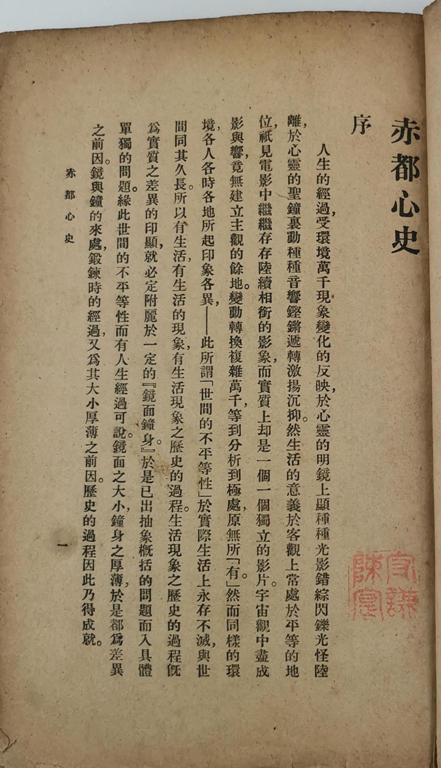 赤都心史
序
人生的經過,受環境萬千現象變化的反映,於心靈的明鏡上顯種種光影,錯綜閃鑠,光怪陸
離,於心靈的聖鐘裏動種種音響,鏗鏘遞轉,激揚沉抑。然生活的意義於客觀上常處於平等的地
位,祇見電影中繼繼存存陸續相銜的影象,而實質上却是一個一個獨立的影片。宇宙觀中盡成
影與響,竟無建立主觀的餘地。變動轉換複雜萬千,等到分析到極處,原無所「有」。然而同樣的環
境,各人各時各地所起印象各異——此所謂「世間的不平等性」於實際生活上永存不滅,與世
間同其久長。所以有生活,有生活的現象,有生活現象之歷史的過程。生活現象之歷史的過程旣
爲實質之差異的印顯,就必定附麗於一定的『鏡面鐘身』。於是已出抽象概括的問題而入具體
單獨的問題。緣此世間的不平等性而有人生經過可說。鏡面之大小,鐘身之厚薄,於是都爲差異
之前因。鏡與鐘的來處,鍛鍊時的經過,又爲其大小厚薄之前因。歷史的過程因此乃得成就。
赤都心史
一